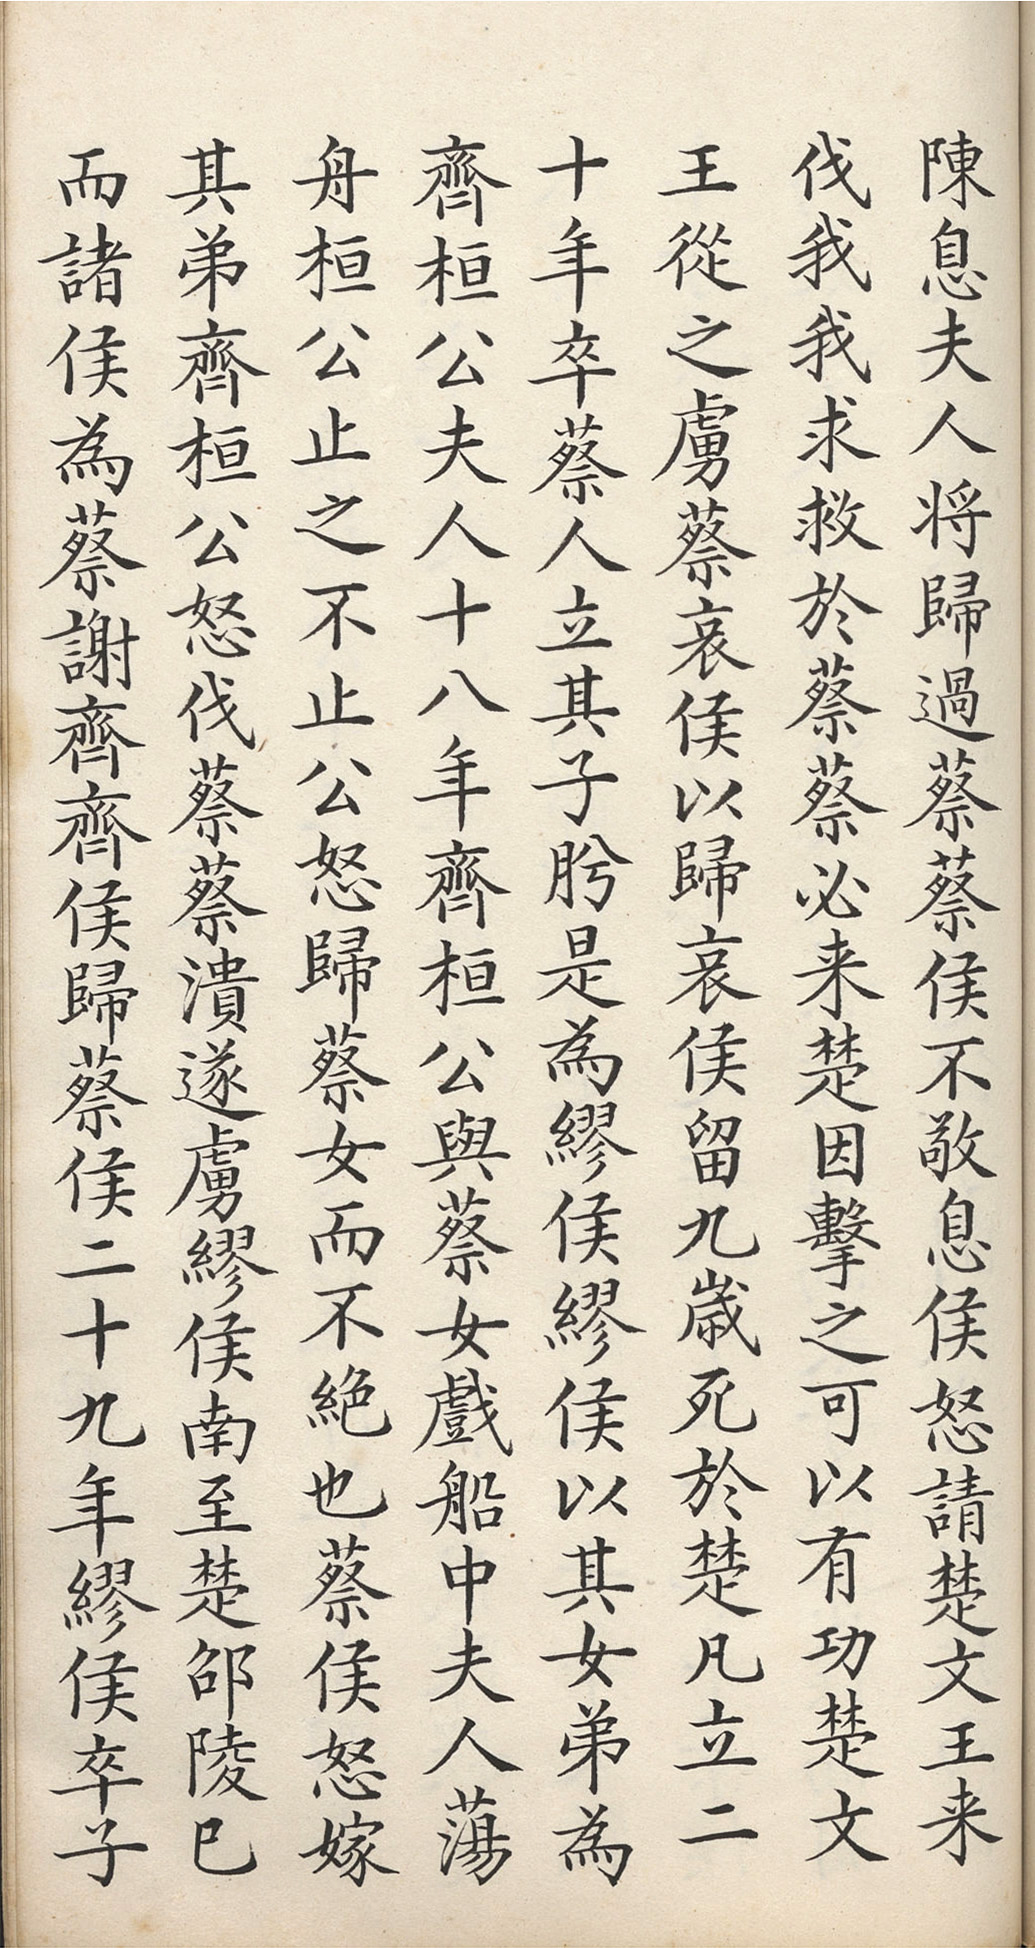 陳息夫人将歸過蔡蔡侯不敬息侯怒請楚文王来
伐我我求救於蔡蔡必来楚因擊之可以有功楚文
王從之虜蔡哀侯以歸哀侯留九歲死於楚凡立二
十年卒蔡人立其子肹是為繆侯繆侯以其女弟為
齊桓公夫人十八年齊桓公與蔡女戲船中夫人蕩
舟桓公止之不止公怒歸蔡女而不絶也蔡侯怒嫁
其弟齊桓公怒伐蔡蔡潰遂虜繆侯南至楚邵陵已
而諸侯為蔡謝齊齊侯歸蔡侯二十九年繆侯卒子